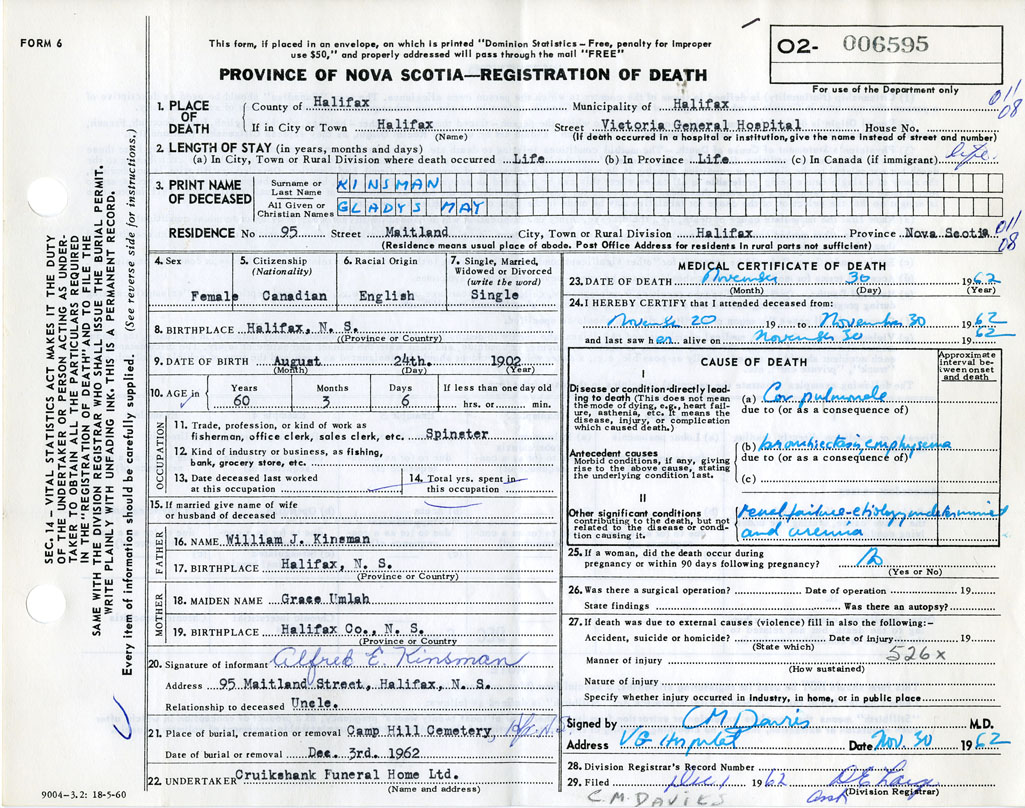 FORM 6
This form, if placed in an envelope, on which is printed "Dominion Statistics – Free, penalty for improper
use $50," and properly addressed will pass through the mail "FREE"
PROVINCE OF NOVA SCOTIA—REGISTRATION OF DEATH
O2- 006595
For use of the Department only
011
08
1. PLACE OF DEATH
County of Halifax Municipality of Halifax
If in City or Town Halifax Street Victoria General Hospital House No.
(Name) (If death occurred in a hospital or institution, give the name instead of street and number)
2. LENGTH OF STAY (in years, months and days)
(a) In City, Town or Rural Division where death occurred Life (b) In Province Life (c) In Canada (if immigrant) life.
3. PRINT NAME OF DECEASED
Surname or Last Name KINSMAN
All Given or Christian Names GLADYS MAY
011
08
RESIDENCE No 95 Street Maitland City, Town or Rural Division Halifax Province Nova Scotia
(Residence means usual place of abode. Post Office Address for residents in rural parts not sufficient)
4. Sex
Female
5. Citizenship
(Nationality)
Canadian
6. Racial Origin
English
7. Single, Married,
Widowed or Divorced
(write the word)
Single
8. BIRTHPLACE Halifax, N. S.
(Province or Country)
9. DATE OF BIRTH August 24th. 1902
(Month) (Day) (Year)
10. AGE in Years Months Days If less than one day old
60 3 6 hrs. or min.
OCCUPATION
11. Trade, profession, or kind of work as
fisherman, office clerk, sales clerk, etc. Spinster
12. Kind of industry or business, as fishing,
bank, grocery store, etc.
13. Date deceased last worked
at this occupation
14. Total yrs. spent in
this occupation
15. If married give name of wife
or husband of deceased
FATHER
16. NAME William J. Kinsman
17. BIRTHPLACE Halifax, N. S.
(Province or Country)
MOTHER
18. MAIDEN NAME Grace Umlah
19. BIRTHPLACE Halifax Co., N. S.
(Province or Country
20. Signature of informant Alfred E. Kinsman
Address 95 Maitland Street, Halifax, N. S.
Relationship to deceased Uncle.
21. Place of burial, cremation or removal Camp Hill Cemetery, Hfx. N.S.
Date of burial or removal Dec. 3rd. 1962
22. UNDERTAKER Cruikshank Funeral Home Ltd.
(Name and address)
MEDICAL CERTIFICATE OF DEATH
23. DATE OF DEATH November 30 1962
(Month) (Day) (Year)
24. I HEREBY CERTIFY that I attended deceased from:
November 20 19 to November 30 1962
and last saw her alive on November 30 1962
CAUSE OF DEATH
Approximate
interval be-
tween onset
and death
I
Disease or condition directly lead-
ing to death (This does not mean
the mode of dying, e.g., heart fail-
ure, asthenia, etc. It means the
disease, injury, or complication
which caused death.)
(a) Cor pulmonale
due to (or as a consequence of)
Antecedent causes
Morbid conditions, if any, giving
rise to the above cause, stating
the underlying condition last.
(b) bronchiectasis, emphysema
due to (or as a consequence of)
(c)
II
Other significant conditions
contributing to the death, but not
related to the disease or condi-
tion causing it.
renal failure - etiology undetermined
and uremia
25. If a woman, did the death occur during
pregnancy or within 90 days following pregnancy? No
(Yes or No)
26. Was there a surgical operation? Date of operation 19
State findings Was there an autopsy?
27. If death was due to external causes (violence) fill in also the following:–
Accident, suicide or homicide? Date of injury 19
(State which)
526x
Manner of injury
(How sustained)
Nature of injury
Specify whether injury occurred in industry, in home, or in public place
Signed by C M Davies M.D.
Address VG Hospital Date Nov. 30 1962
28. Division Registrar's Record Number
29. Filed Dec 1 1962
(Division Registrar)
C. M. DAVIES
SEC. 14 – VITAL STATISTICS ACT MAKES IT THE DUTY
OF THE UNDERTAKER OR PERSON ACTING AS UNDER-
TAKER TO OBTAIN ALL THE PARTICULARS REQUIRED
IN THE "REGISTRATION OF DEATH" AND TO FILE THE
SAME WITH THE DIVISION REGISTRAR WHO SHALL ISSUE THE BURIAL PERMIT.
WRITE PLAINLY WITH UNFADING INK–THIS IS A PERMANENT RECORD.
Every item of information should be carefully supplied. (See reverse side for instructions.)
9004-3.2: 18-5-60